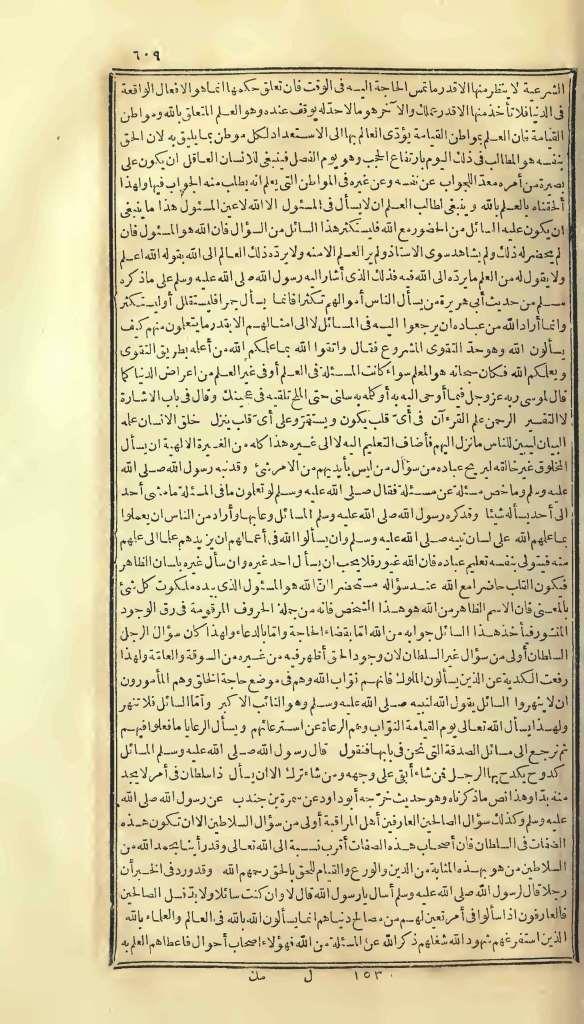 ٦٠٩
الشرعية لا ينظر منها الا قدر ما تمس الحاجة اليه فى الوقت فان تعلق حكمها انما هو الافعال الواقعة
فى الدنيا فلا تأخذ منها الا قدر عملك والآخر هو ما لا حد له يوقف عنده وهو العلم المتعلق بالله ومواطن
القيامة فان العلم بمواطن القيامة يؤدى العالم بها الى الاستعداد لكل موطن بما يليق به لان الحق
بنفسه هو المطالب فى ذلك اليوم بارتفاع الحجب وهو يوم الفصل فينبغى للانسان العاقل ان يكون على
بصيرة من أمره معدّا للجواب عن نفسه وعن غيره فى المواطن التى يعلم انه يطلب منه الجواب فيها ولهذا
ألحقناه بالعلم بالله وينبغى لطالب العلم ان لا يسأل فى المسئول الا الله لا عين المسئول هذا ما ينبغى
ان يكون عليه السائل من الحضور مع الله فليستكثر هذا السائل من السؤال فان الله هو المسئول فان
لم يحضر له ذلك ولم يشاهد سوى الاستاذ ولم ير العلم الا منه ولا يردّه ذلك العالم الى الله بقوله الله اعلم
ولا يقول له من العلم ما يردّه الى الله فيه فذلك الذى أشار اليه رسول الله صلى الله عليه وسلم على ما ذكره
مسلم من حديث أبى هريرة من يسأل الناس أموالهم تكثرا فانما يسأل جمرا فليستقلل أو ليستكثر
وانما أراد الله من عباده ان يرجعوا اليه فى المسائل لا الى امثالهم الا بقدر ما يتعلمون منهم كيف
يسألون الله وهو حدّ التقوى المشروع فقال واتقوا الله بما علمكم الله من أعلمه بطريق التقوى
ويعلمكم الله فكان سبحانه هو المعلم سواء كانت المسئلة فى العلم أو فى غير العلم من اعراض الدنيا كما
قال لموسى ربه عز وجل فيما أوحى اليه به أو كلمه به سلنى حتى الملح تلقيه فى عجينك وقال فى باب الاشارة
لا التفسير الرحمن علم القرءآن فى أىّ قلب يكون ويستقرّ وعلى أىّ قلب ينزل خلق الانسان علمه
البيان ليبين للناس ما نزل اليهم فأضاف التعليم اليه لا الى غيره هذا كله من الغيرة الالهية ان يسأل
المخلوق غير خالقه ليريح عباده من سؤال من ليس بأيديهم من الامر شئ وقد نبه رسول الله صلى الله
عليه وسلم وما خص مسئلة عن مسئلة فقال صلى الله عليه وسلم لو تعلمون ما فى المسئلة ما مشى أحد
الى أحد يسأله شيئا وقد كره رسول الله صلى الله عليه وسلم المسائل وعابها وأراد من الناس ان يعملوا
بما علمهم الله على لسان نبيه صلى الله عليه وسلم وان يسألوا الله فى أعمالهم ان يزيدهم علما الى علمهم
منه فيتولى بنفسه تعليم عباده فان الله غيور فلا يحب ان يسأل احد غيره وان سأل غيره بلسان الظاهر
فيكون القلب حاضرا مع الله عند سؤاله مستحضرا انّ الله هو المسئول الذى بيده ملكوت كل شئ
بالمعنى فان الاسم الظاهر من الله هو هذا الشخص فانه من جملة الحروف المرقومة فى رق الوجود
المنشور فيأخذ هذا السائل جوابه من الله امّا بقضاء الحاجة وامّا بالدعاء ولهذا كان سؤال الرجل
السلطان أولى من سؤال غير السلطان لان وجود الحق أظهر فيه من غيره من السوقة والعامّة ولهذا
رفعت الكدية عن الذين يسألون الملوك فانهم نوّاب الله وهم فى موضع حاجة الخلق وهم المأمورون
ان لا ينهروا السائل يقول الله لنبيه صلى الله عليه وسلم وهو النائب الاكبر وأمّا السائل فلا تنهر
ولهذا يسأل الله تعالى يوم القيامة النوّاب وهم الرعاة عن استرعائهم ويسأل الرعايا ما فعلوا فيهم
ثم نرجع الى مسائل الصدقة التى نحن فى بابها فنقول قال رسول الله صلى الله عليه وسلم المسائل
كدوح يكدح بها الرجل فمن شاء أبقى على وجهه ومن شاء ترك الا ان يسأل ذا سلطان فى أمر لا يجد
منه بدّا وهذا نص ما ذكرناه وهو حديث خرّجه أبو داود عن سمرة بن جندب عن رسول الله صلى الله
عليه وسلم وكذلك سؤال الصالحين العارفين أهل المراقبة أولى من سؤال السلاطين الا ان تكون هذه
الصفات فى السلطان فان أصحاب هذه الصفات أقرب نسبة الى الله تعالى وقد رأينا بحمد الله من
السلاطين من هو بهذه المثابة من الدين والورع والقيام للحق بالحق رحمهم الله وقد ورد فى الخبر أن
رجلا قال لرسول الله صلى الله عليه وسلم أسأل يا رسول الله قال لا وان كنت سائلا ولا بدّ فسل الصالحين
فالعارفون اذا سألوا فى أمر تعين لهم من مصالح دنياهم انما يسألون الله بالله فى العالم والعلماء بالله
الذين استفرغهم شهود الله شغلهم ذكر الله عن المسئلة من الله فهؤلاء اصحاب أحوال فاعطاهم العلم به
١٥٣ ل مك